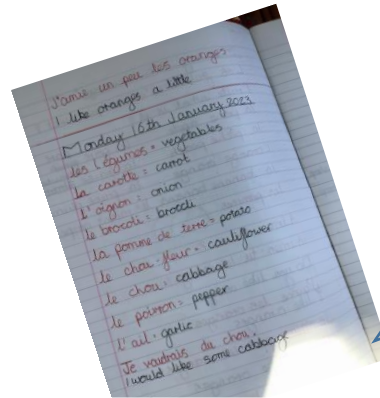 J'aime un peu les oranges
I like oranges a little
Monday 16th January 2023
les légumes = vegetables
la carotte = carrot
l'oignon = onion
le brocoli = brocoli
la pomme de terre = potato
le chou-fleur = cauliflower
le chou = cabbage
le poivron = pepper
l'ail = garlic
Je voudrais du chou.
I would like some cabbage